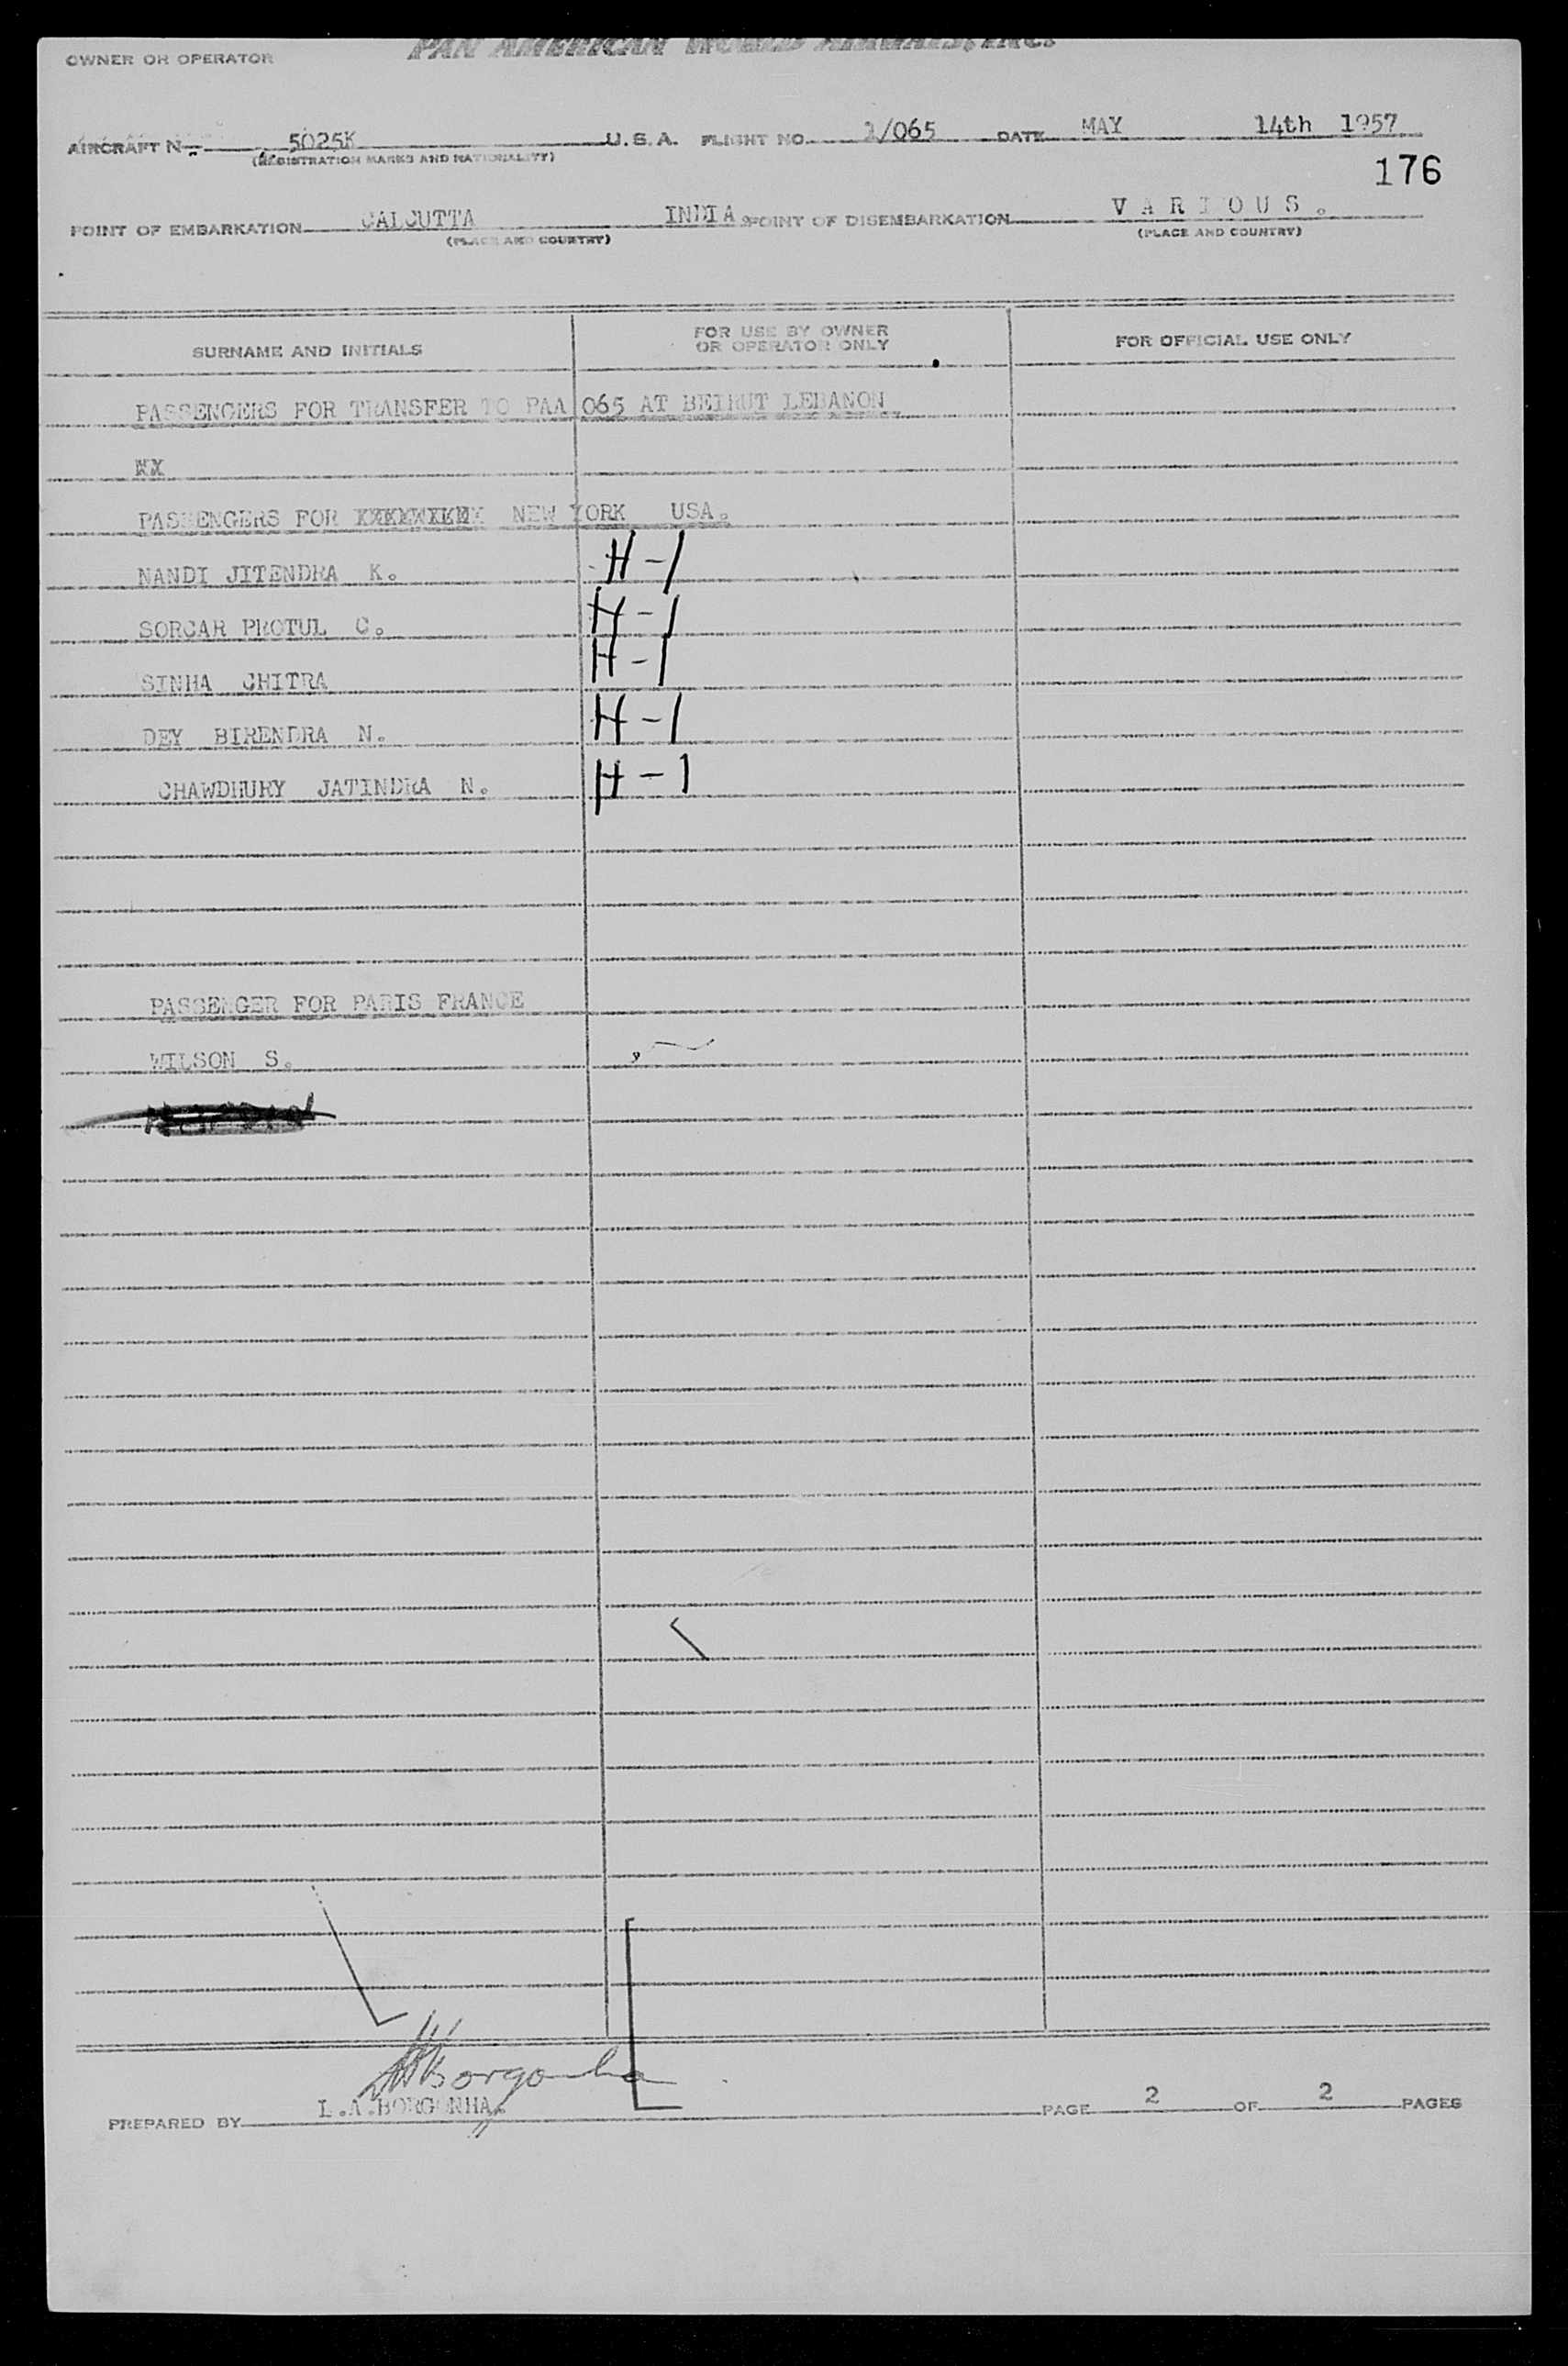 PAN AMERICAN WORLD AIRWAYS, INC.
OWNER OR OPERATOR
AIRCRAFT N 5025K U.S.A. FLIGHT NO. 1/065 DATE MAY 14th 1957
(REGISTRATION MARKS AND NATIONALITY)
176
POINT OF EMBARKATION CALCUTTA INDIA. POINT OF DISEMBARKATION VARIOUS.
(PLACE AND COUNTRY) (PLACE AND COUNTRY)
SURNAME AND INITIALS FOR USE BY OWNER OR OPERATOR ONLY FOR OFFICIAL USE ONLY
PASSENGERS FOR TRANSFER TO PAA 065 AT BEIRUT LEBANON
PASSENGERS FOR NEW YORK USA.
NANDI JITENDRA K. H-1
SORCAR PROTUL C. H-1
SINHA CHITRA H-1
DEY BIRENDRA N. H-1
CHAWDHURY JATINDRA N. H-1
PASSENGER FOR PARIS FRANCE
WILSON S.
Borgonha
PREPARED BY L.A.BORGONHA. PAGE 2 OF 2 PAGES